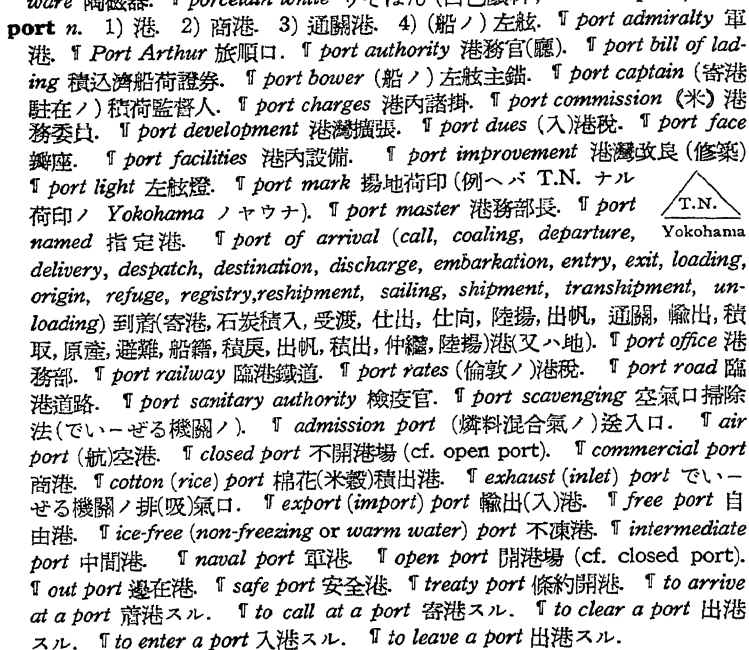 ware 陶磁器. ¶ porcelain white
port n. 1) 港. 2) 商港. 3) 通關港. 4) (船ノ) 左舷. ¶ port admiralty 軍
港. ¶ Port Arthur 旅順口. ¶ port authority 港務官(廳). ¶ port bill of lad-
ing 積込濟船荷證券. ¶ port bower (船ノ) 左舷主錨. ¶ port captain (寄港
駐在ノ) 積荷監督人. ¶ port charges 港內諸掛. ¶ port commission (米) 港
務委員. ¶ port development 港灣擴張. ¶ port dues (入)港稅. ¶ port face
瓣座. ¶ port facilities 港內設備. ¶ port improvement 港灣改良 (修築)
¶ port light 左舷燈. ¶ port mark 揚地荷印 (例ヘバ T.N. ナル
荷印ノ Yokohama ノヤウナ). ¶ port master 港務部長. ¶ port
T.N.
named 指定港. ¶ port of arrival (call, coaling, departure,
Yokohama
delivery, despatch, destination, discharge, embarkation, entry, exit, loading,
origin, refuge, registry,reshipment, sailing, shipment, transhipment, un-
loading) 到着(寄港, 石炭積入, 受渡, 仕出, 仕向, 陸揚, 出帆, 通關, 輸出, 積
取, 原產, 避難, 船籍, 積戾, 出帆, 積出, 仲繼, 陸揚)港(又ハ地). ¶ port office 港
務部. ¶ port railway 臨港鐵道. ¶ port rates (倫敦ノ)港稅. ¶ port road 臨
港道路. ¶ port sanitary authority 檢疫官. ¶ port scavenging 空氣口掃除
法(でぃーぜる機關ノ). ¶ admission port (燐料混合氣ノ) 送入口. ¶ air
port (航)空港. ¶ closed port 不開港場 (cf. open port). ¶ commercial port
商港. ¶ cotton (rice) port 棉花(米穀)積出港. ¶ exhaust (inlet) port でぃー
ぜる機關ノ排(吸)氣口. ¶ export (import) port 輸出(入)港. ¶ free port 自
由港. ¶ ice-free (non-freezing or warm water) port 不凍港. ¶ intermediate
port 中間港. ¶ naval port 軍港. ¶ open port 開港場 (cf. closed port).
¶ out port 邊在港. ¶ safe port 安全港. ¶ treaty port 條約開港. ¶ to arrive
at a port 着港スル. ¶ to call at a port 寄港スル. ¶ to clear a port 出港
スル. ¶ to enter a port 入港スル. ¶ to leave a port 出港スル.